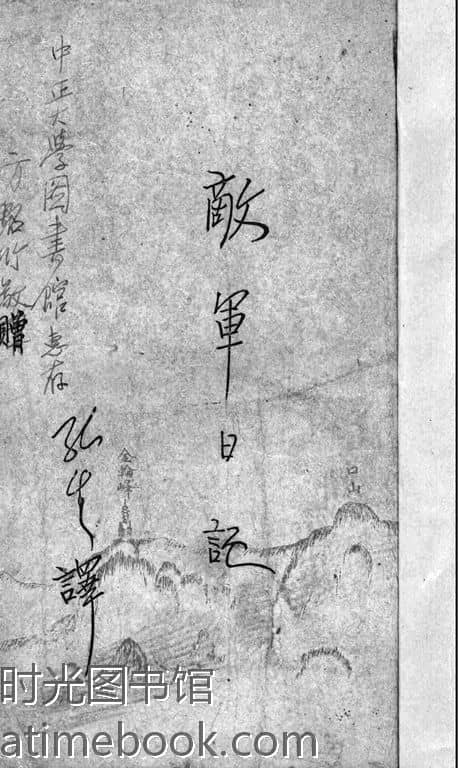 敵軍日記
弘生譯
中正大學图書館惠存
方銘竹敬贈
金輪峰
口山
时光图书馆
atimebook.com